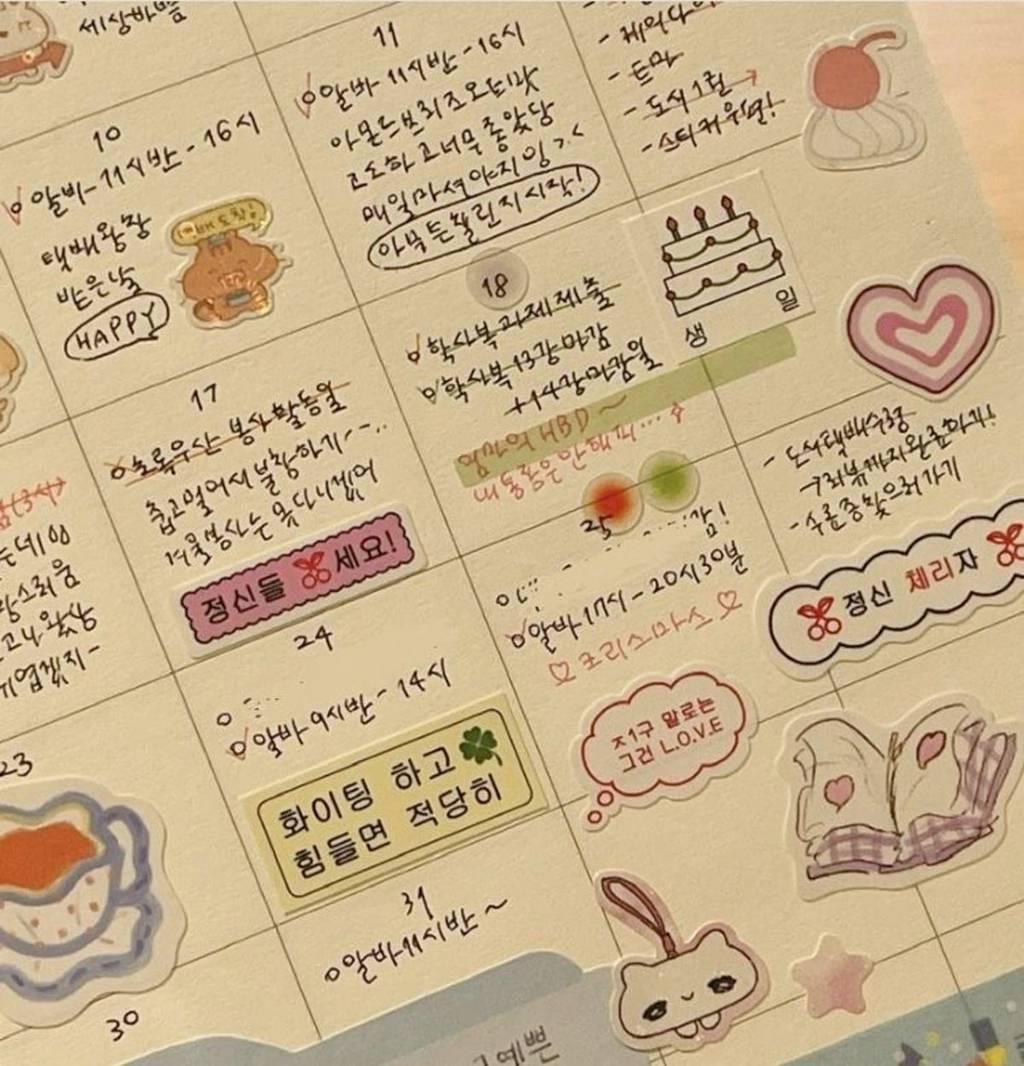 세상바쁨
10
알바 - 11시반 - 16시
택배왕창
받은날
HAPPY
택배 도착!
11
알바 11시반 - 16시
아몬드브리즈오트맛
고소하고너무좋았당
매일마셔야지잉 >.<
아북튼챌린지시작!
- 드라마
- 도시1컷 →
17
초록우산 봉사활동일
춥고멀어서불참하기
겨울봉사는못다니겠어
정신들 세요!
18
학사복과제제출
학사복13강마감
+14강마감일
엄마의 HBD ~
생 일
- 도서택배수령
- 수료증찾으러가기
는데잉
랑스러움
귀엽겠지-
23
24
알바 9시반 - 14시
화이팅 하고
힘들면 적당히
25
감!
알바 17시 - 20시30분
♡ 크리스마스 ♡
정신 체리자
지구 말로는
그런 L.O.V.E
30
31
알바11시반 ~
예쁜